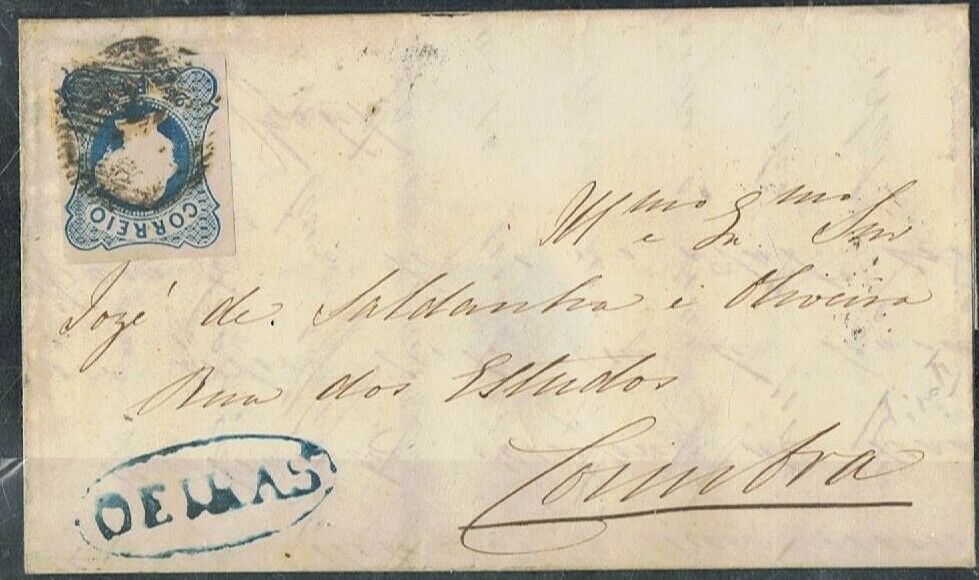 CORREIO
Illmo e Exmo Snr
Jozé de Saldanha e Oliveira
Rua dos Estudos
Coimbra
OEIRAS